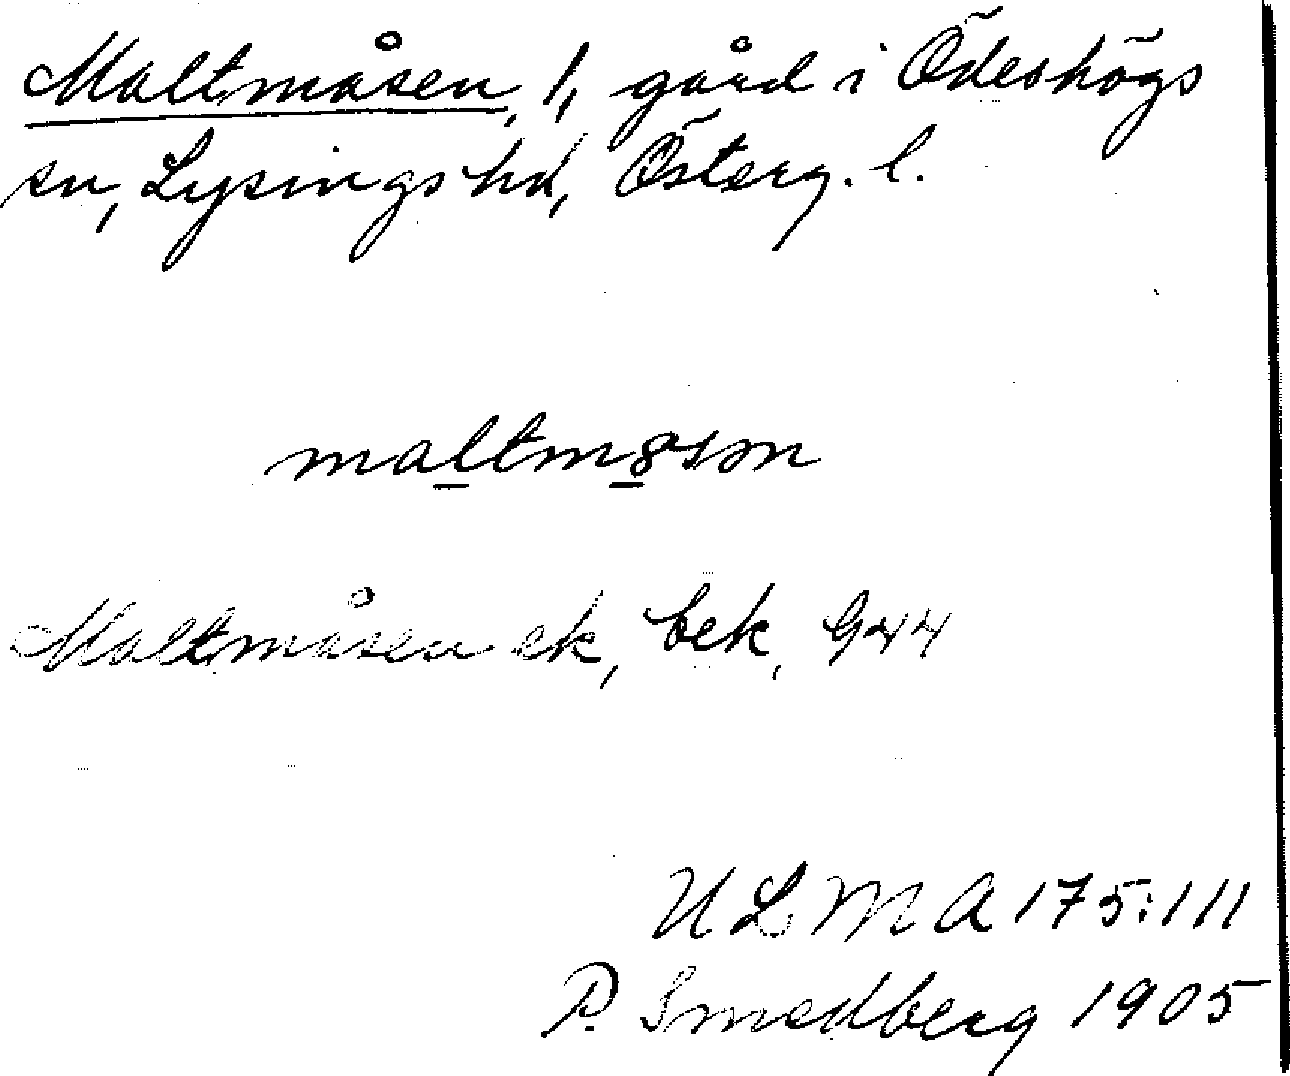 Maltmåsen, 1, gård i Ödeshögs
sn, Lysings hd, Österg. l.
maltmåsən
Maltmåsen ek, bek, G44
ULMA 175:111
P. Smedberg 1905